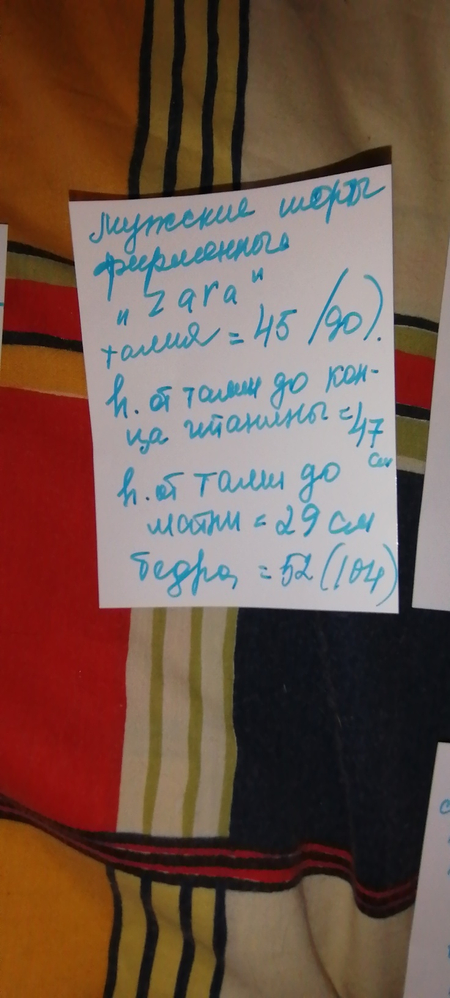 мужские шорты
фирменные
"Zara"
талия = 45 (90).
h. от талии до кон-
ца штанины = 47
см
h. от талии до
мотни = 29 см
бедра = 52 (104)